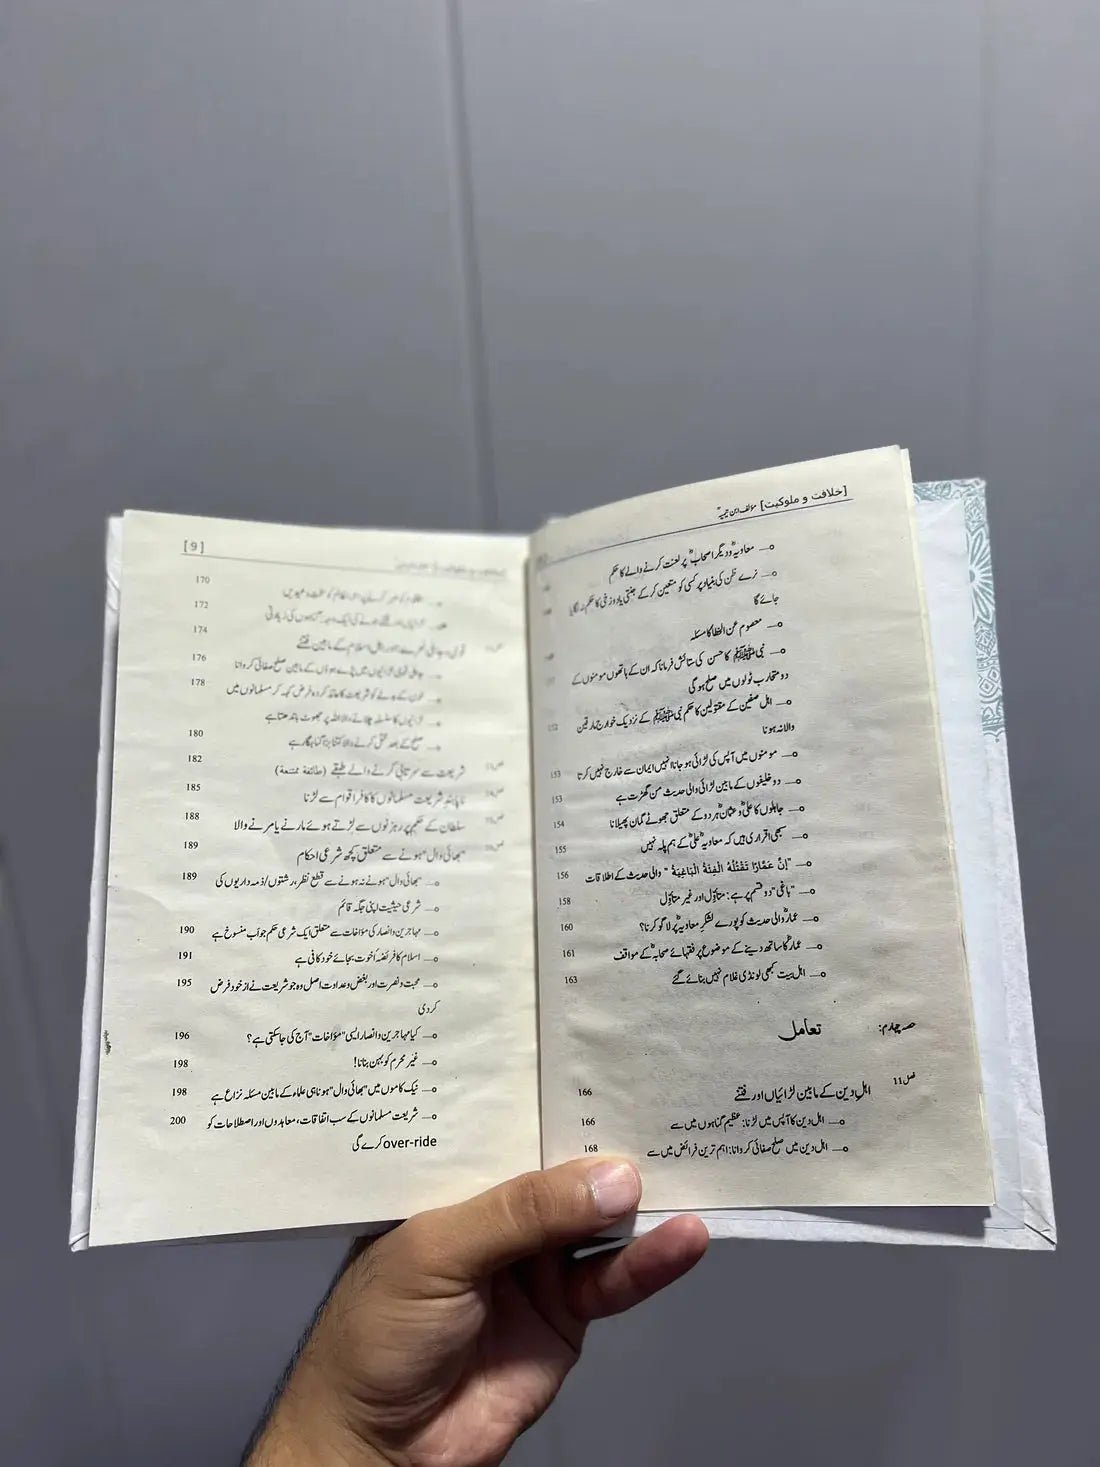 [خلافت و ملوکیت] مؤلف ابن تیمیہؒ
معاویہؓ و دیگر اصحابؓ پر لعنت کرنے والے کا حکم
نرے ظن کی بنیاد پر کسی کو متعین کر کے جنتی یا دوزخی کا حکم نہ لگایا
جائے گا
معصوم عن الخطا کا مسئلہ
نبی ﷺ کا حسنؓ کی ستائش فرمانا کہ ان کے ہاتھوں مومنوں کے
دو متحارب ٹولوں میں صلح ہوگی
اہل صفین کے مقتولین کا حکم نبی ﷺ کے نزدیک خوارج مارقین 152
والا نہ ہونا
مومنوں میں آپس کی لڑائی ہو جانا انہیں ایمان سے خارج نہیں کرتا 153
دو خلیفوں کے مابین لڑائی والی حدیث من گھڑت ہے 153
جاہلوں کا علیؓ و عثمانؓ ہر دو کے متعلق جھوٹے گمان پھیلانا 154
سبھی اقراری ہیں کہ معاویہؓ علیؓ کے ہم پلہ نہیں 155
"إنّ عَمَّارًا تَقْتُلُهُ الْفِئَةُ الْبَاغِيَةُ" والی حدیث کے اطلاقات 156
"باغی" دو قسم پر ہے: متأوّل اور غیر متأوّل 158
عمارؓ والی حدیث کو پورے لشکرِ معاویہؓ پر لاگو کرنا؟ 160
عمارؓ کا ساتھ دینے کے موضوع پر فقہائے صحابہؓ کے مواقف 161
اہل بیت کبھی لونڈی غلام نہیں بنائے گئے 163
حصہ چہارم: تعامل
فصل 11 اہلِ دین کے مابین لڑائیاں اور فتنے 166
اہل دین کا آپس میں لڑنا: عظیم گناہوں میں سے 166
اہل دین میں صلح صفائی کروانا: اہم ترین فرائض میں سے 168
[9]
170
172
قومی، جاہلی نعرے اور اہل اسلام کے مابین فتنے 174
جاہلی قبائلی لڑائیوں میں پڑے ہوؤں کے مابین صلح صفائی کروانا 176
خون کے بدلے کو شریعت کا عائد کردہ فرض کہہ کر مسلمانوں میں 178
لڑائیوں کا سلسلہ چلانے والا اللہ پر جھوٹ باندھتا ہے
صلح کے بعد قتل کرنے والا کتنا بڑا گناہگار ہے 180
شریعت سے سرتابی کرنے والے طبقے (طائفة ممتنعة) 182
نا پابندِ شریعت مسلمانوں کا کافر اقوام سے لڑنا 185
سلطان کے حکم پر رہزنوں سے لڑتے ہوئے مارنے یا مرنے والا 188
"بھائی وال" ہونے سے متعلق کچھ شرعی احکام 189
"بھائی وال" ہونے نہ ہونے سے قطع نظر، رشتوں/ذمہ داریوں کی 189
شرعی حیثیت اپنی جگہ قائم
مہاجرین و انصار کی مؤاخات سے متعلق ایک شرعی حکم جو اب منسوخ ہے 190
اسلام کا فریضۂ اُخوت بجائے خود کافی ہے 191
محبت و نصرت اور بغض و عداوت اصل وہ جو شریعت نے از خود فرض 195
کر دی
کیا مہاجرین و انصار ایسی "مؤاخات" آج کی جا سکتی ہے؟ 196
غیر محرم کو بہن بنانا! 198
نیک کاموں میں "بھائی وال" ہونا ہی علماء کے مابین مسئلہ نزاع ہے 198
شریعت مسلمانوں کے سب اتفاقات، معاہدوں اور اصطلاحات کو 200
over-ride کرے گی